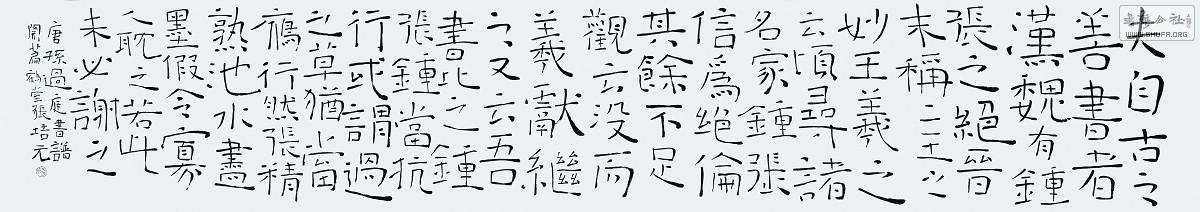 夫自古之
善書者
漢魏有鍾
張之絕晉
末稱二王之
妙王羲之
云頃尋諸
名家鍾張
信爲絕倫
其餘不足
觀云没而
羲獻繼
之又云吾
書比之鍾
張鍾當抗
行或謂過
之草猶當
鴈行然張精
熟池水盡
墨假令寡
人耽之若此
未必謝之
唐孫過庭書譜
開篇 堂張培元
書法公社
WWW.SHUFA.ORG